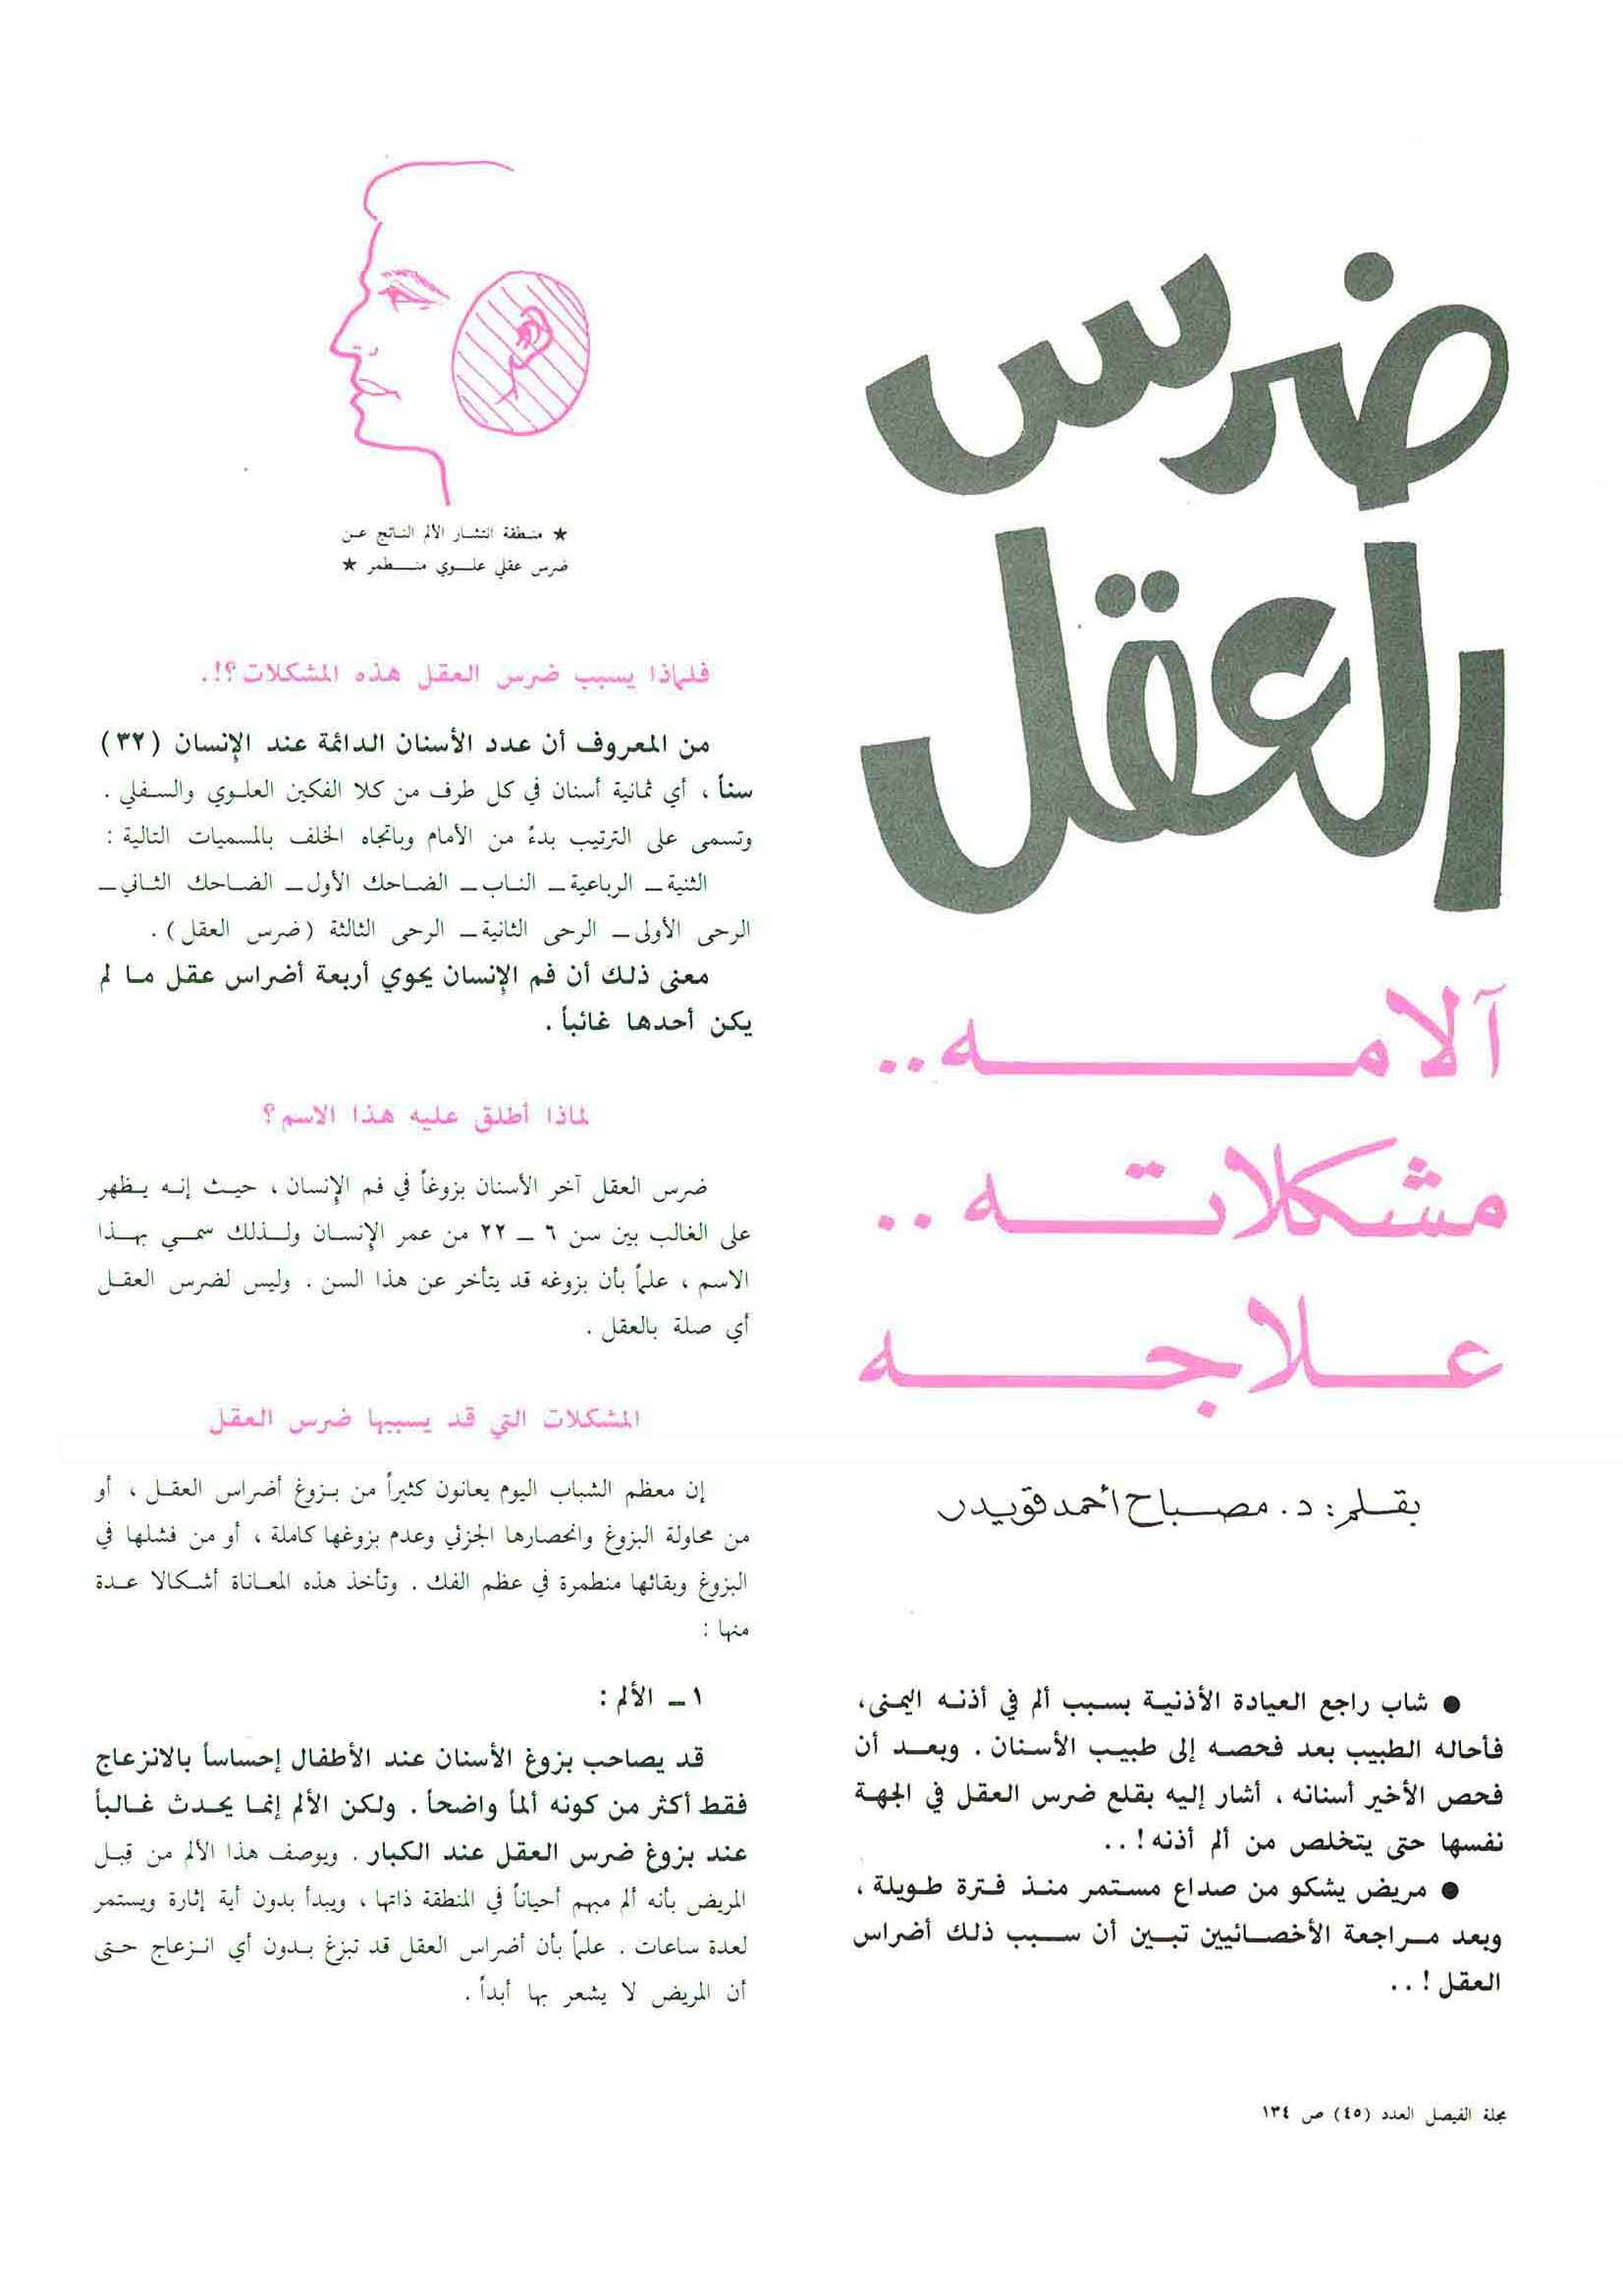 ضرس
العقل
آلامه ..
مشكلاته ..
علاجه
بقلم : د. مصباح أحمد قويدر
● شاب راجع العيادة الأذنية بسبب ألم في أذنه اليمنى،
فأحاله الطبيب بعد فحصه إلى طبيب الأسنان . وبعد أن
فحص الأخير أسنانه ، أشار إليه بقلع ضرس العقل في الجهة
نفسها حتى يتخلص من ألم أذنه ! . .
● مريض يشكو من صداع مستمر منذ فترة طويلة ،
وبعد مراجعة الأخصائيين تبين أن سبب ذلك أضراس
العقل ! . .
★ منطقة انتشار الألم الناتج عن
ضرس عقلي علوي منطمر ★
فلماذا يسبب ضرس العقل هذه المشكلات ؟!.
من المعروف أن عدد الأسنان الدائمة عند الإنسان (٣٢)
سناً ، أي ثمانية أسنان في كل طرف من كلا الفكين العلوي والسفلي .
وتسمى على الترتيب بدءً من الأمام وباتجاه الخلف بالمسميات التالية :
الثنية – الرباعية – الناب – الضاحك الأول – الضاحك الثاني –
الرحى الأولى – الرحى الثانية – الرحى الثالثة (ضرس العقل) .
معنى ذلك أن فم الإنسان يحوي أربعة أضراس عقل ما لم
يكن أحدها غائباً .
لماذا أطلق عليه هذا الاسم ؟
ضرس العقل آخر الأسنان بزوغاً في فم الإنسان ، حيث إنه يظهر
على الغالب بين سن ٦ – ٢٢ من عمر الإنسان ولذلك سمي بهذا
الاسم ، علماً بأن بزوغه قد يتأخر عن هذا السن . وليس لضرس العقل
أي صلة بالعقل .
المشكلات التي قد يسببها ضرس العقل
إن معظم الشباب اليوم يعانون كثيراً من بزوغ أضراس العقل ، أو
من محاولة البزوغ وانحصارها الجزئي وعدم بزوغها كاملة ، أو من فشلها في
البزوغ وبقائها منطمرة في عظم الفك . وتأخذ هذه المعاناة أشكالا عدة
منها :
١ – الألم :
قد يصاحب بزوغ الأسنان عند الأطفال إحساساً بالانزعاج
فقط أكثر من كونه ألماً واضحاً . ولكن الألم إنما يحدث غالباً
عند بزوغ ضرس العقل عند الكبار . ويوصف هذا الألم من قِبل
المريض بأنه ألم مبهم أحياناً في المنطقة ذاتها ، ويبدأ بدون أية إثارة ويستمر
لعدة ساعات . علماً بأن أضراس العقل قد تبزغ بدون أي انزعاج حتى
أن المريض لا يشعر بها أبداً .
مجلة الفيصل العدد (٤٥) ص ١٣٤